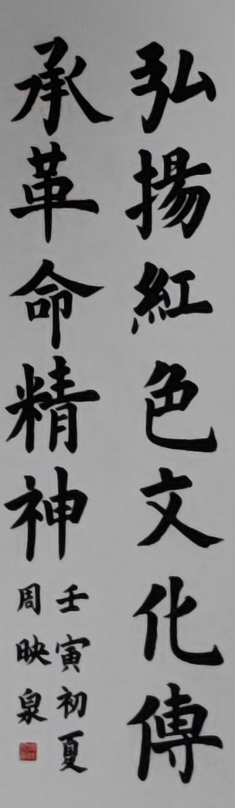 弘揚紅色文化傳
承革命精神
壬寅初夏
周映泉